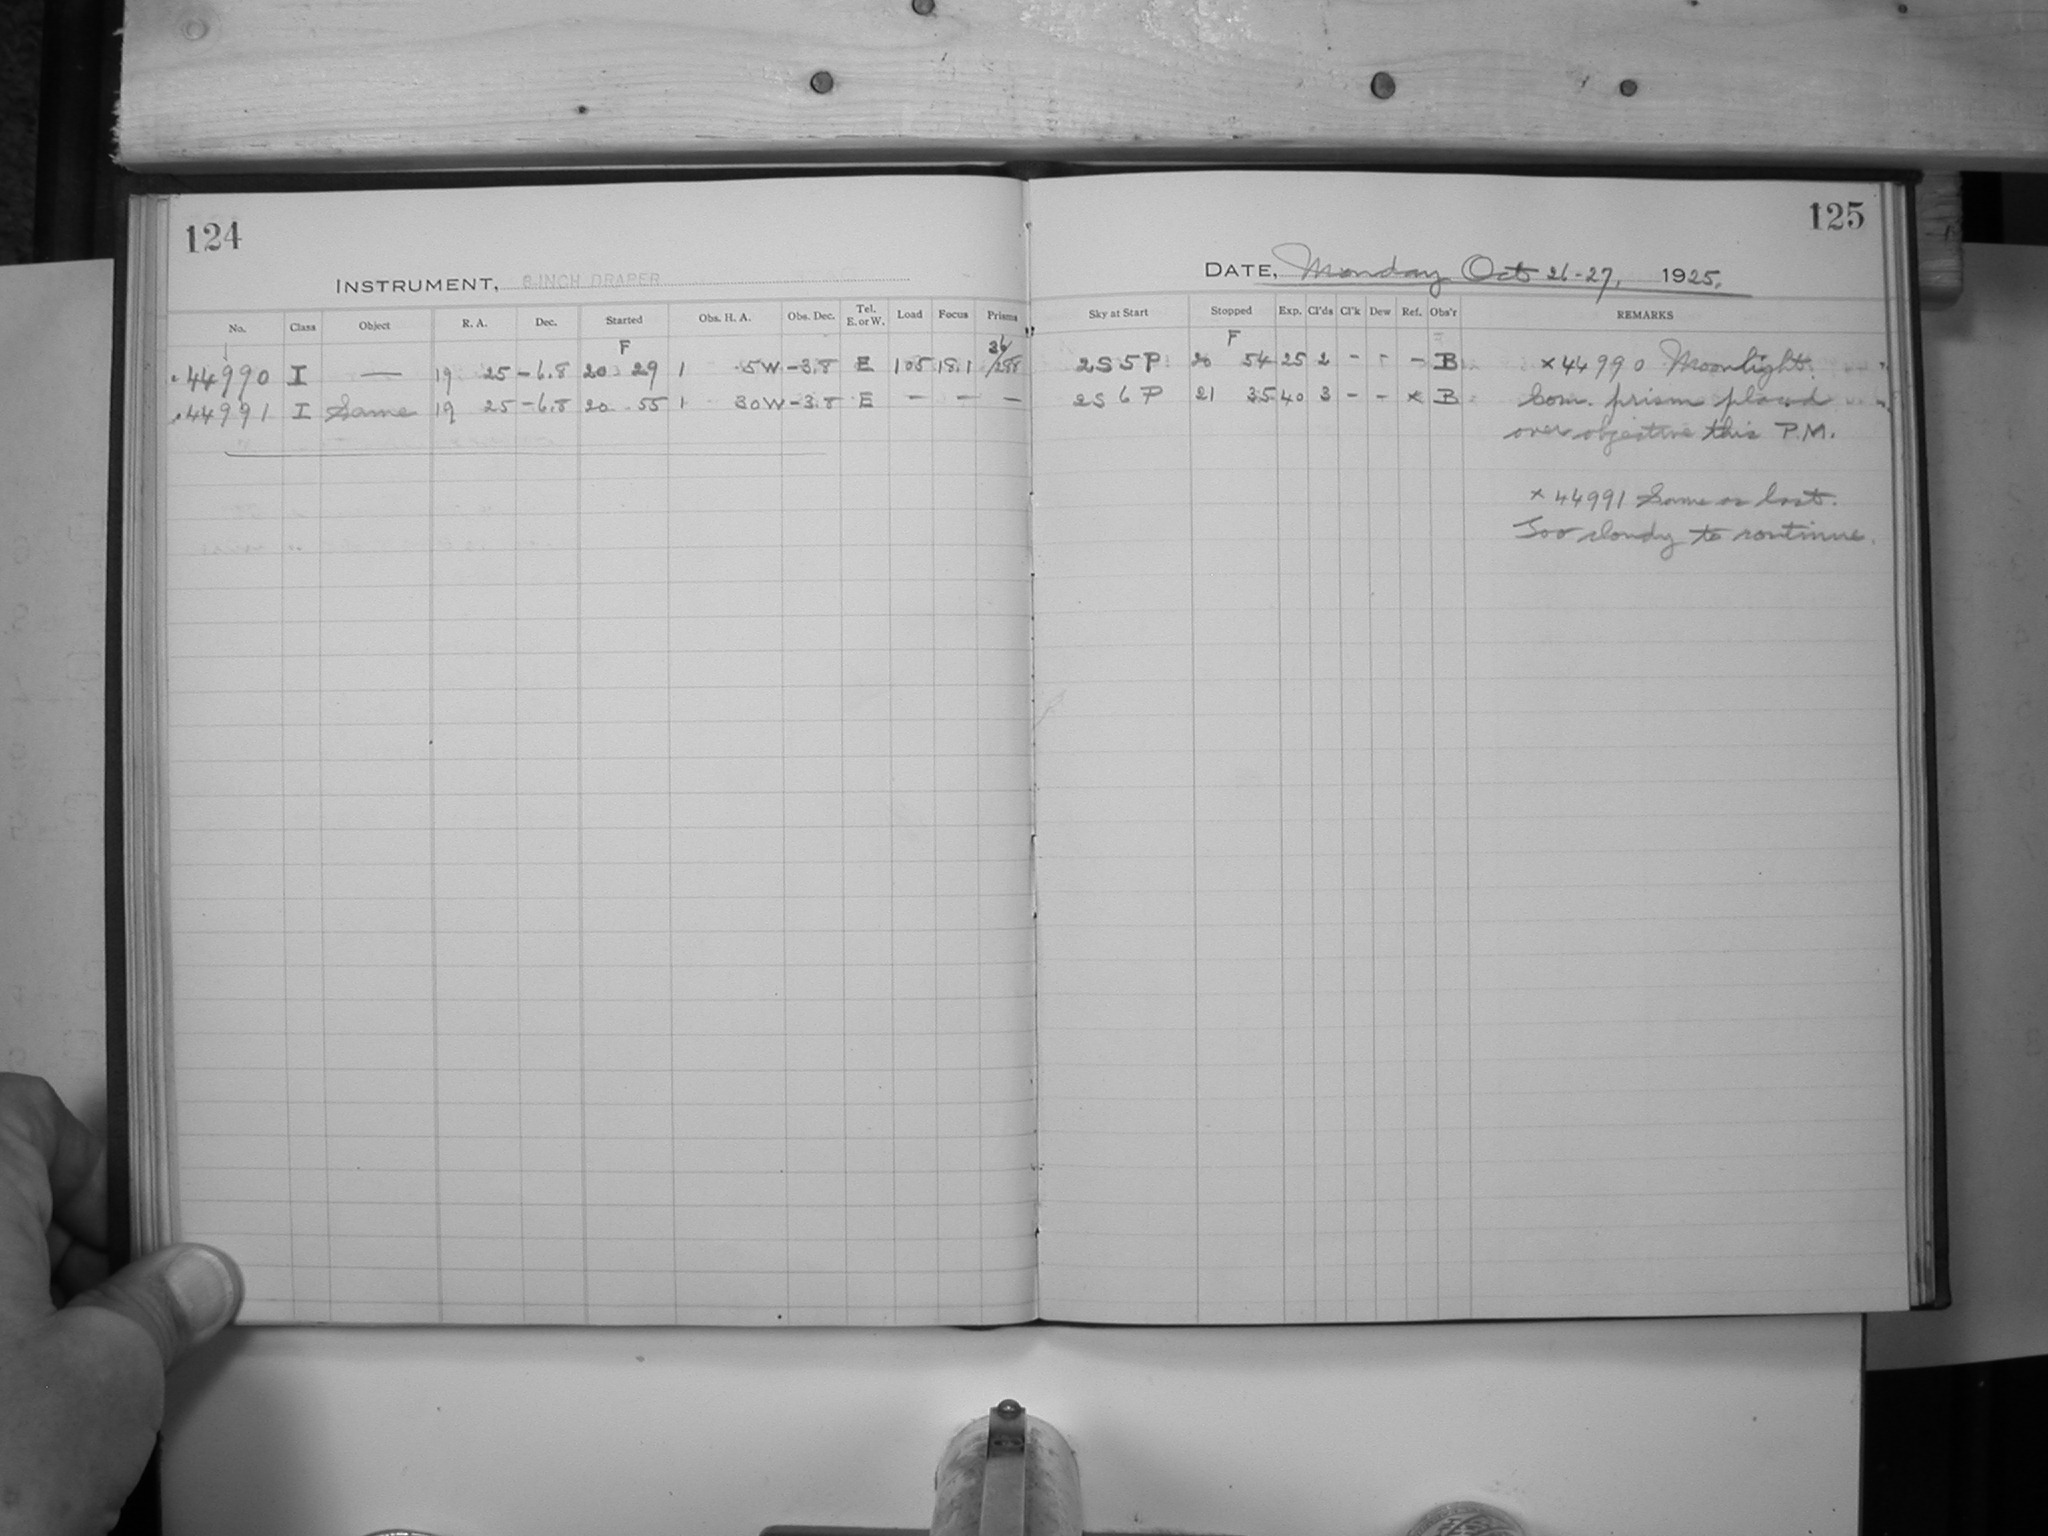 124
125
INSTRUMENT, 8 INCH DRAPER
DATE, Monday Oct 26-27, 1925.
No. Class Object R. A. Dec. Started Obs. H. A. Obs. Dec. Tel. E. or W. Load Focus Prisms Sky at Start Stopped Exp. Cl'ds Cl'k Dew Ref. Obs'r REMARKS
F F
44990 I — 19 25 -6.8 20 29 1 5W -3.8 E 105 18.1 2S 5P 20 54 25 2 - - - B × 44990 Moonlight.
44991 I Same 19 25 -6.8 20 55 1 30W -3.8 E - - - 2S 6P 21 35 40 3 - - × B Com. prism placed
over objective this P.M.
× 44991 Same as last.
Too cloudy to continue.